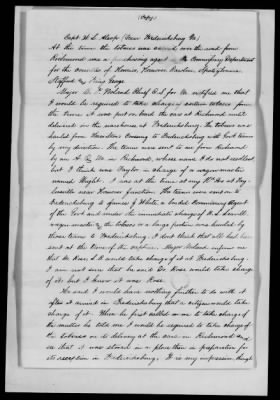 (Copy)
Capt H. L. Alsop (near Fredericksburg Va)
At the time the tobacco was carried over the road from
Richmond was a purchasing agent in the Commissary Department
for the counties of Hanover, Caroline, Spotsylvania
Stafford and King George
Major B. P. Noland Chief C.S. for Va notified me that
I would be required to take charge of certain tobacco from
the time it was put on board the cars at Richmond until
delivered on the warehouse at Fredericksburg. The tobacco was
hauled from Hamiltons Crossing to Fredericksburg with Govt teams
by my direction. The teams were sent to me from Richmond
by an A Q M in Richmond, whose name I do not recollect
but I think was Taylor in charge of a wagon master
named Wright. I was at the time at my
near Hanover Junction. The teams were sent on to
Fredericksburg to Spence G White a bonded Commissary Agent
of the Govt and under the immediate charge of
wagon master the tobacco or a large portion was hauled by
these teams to Fredericksburg. I dont think that all had been
sent at the time of the capture. Major Noland informed me
that Mr Rose would take charge of it at Fredericksburg.
I am not sure that he said Mr Rose would take charge
of it, but I know it was Rose.
He said I would have nothing further to do with it
after it arrived in Fredericksburg that a citizen would take
charge of it. When he first called on me to take charge of
the matter he told me I would be required to take charge of
the tobacco on its delivery at the cars in Richmond and
see that it was stored in a place then in preparation for
its reception in Fredericksburg. It is my impression though